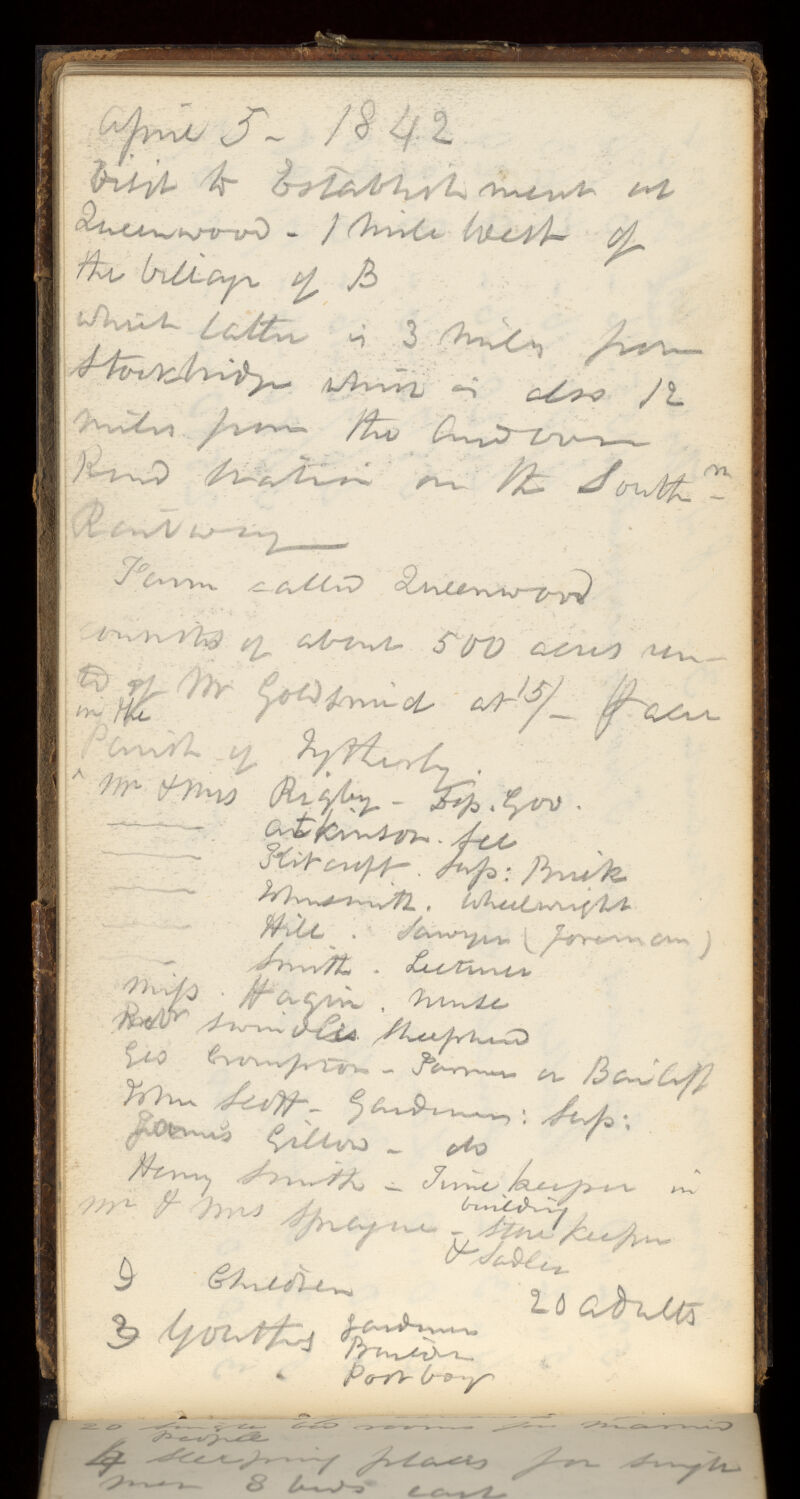 April 5 - 1842
Visit to Establishment at
Queenwood - 1 Mile West of
the village of B
which latter is 3 Miles from
Stockbridge which is also 12
miles from the Andover
Road Station on the South n
Railway
Farm called Queenwood
consists of about 500 acres ren-
ted of Mr Goldsmid at 15/- ⅌ acre
in the
Parish of Tytherly.
Mr & Mrs Rigby - Dep. Gov.
—— Atkinson.
—— Sup: Brick
—— Johnsmith. Wheelwright
—— Hill. Sawyer (foreman)
—— Smith. Lecturer
Miss. Hagin. Nurse
Robr Swindles Shepherd
Geo Crompton - Farmer or Bailiff
John Scott - Gardener: Sup:
James Gillow - do
Henry Smith - Time keeper in
building
Mr & Mrs Sprague - Store keeper
& Sadler
9 Children
20 adults
3 Youths gardener
Builder
Post boy
20 single rooms for married
people
4 sleeping places for single
men 8 beds each